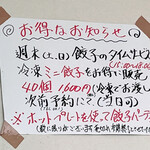 お得なお知らせ
週末(土、日)餃子のタイムサービス
冷凍ミニ餃子をお得に販売
40個 1600円(冷凍でお渡し)
次前予約にて(当日可)
※ホットプレートを使って餃子パーティー